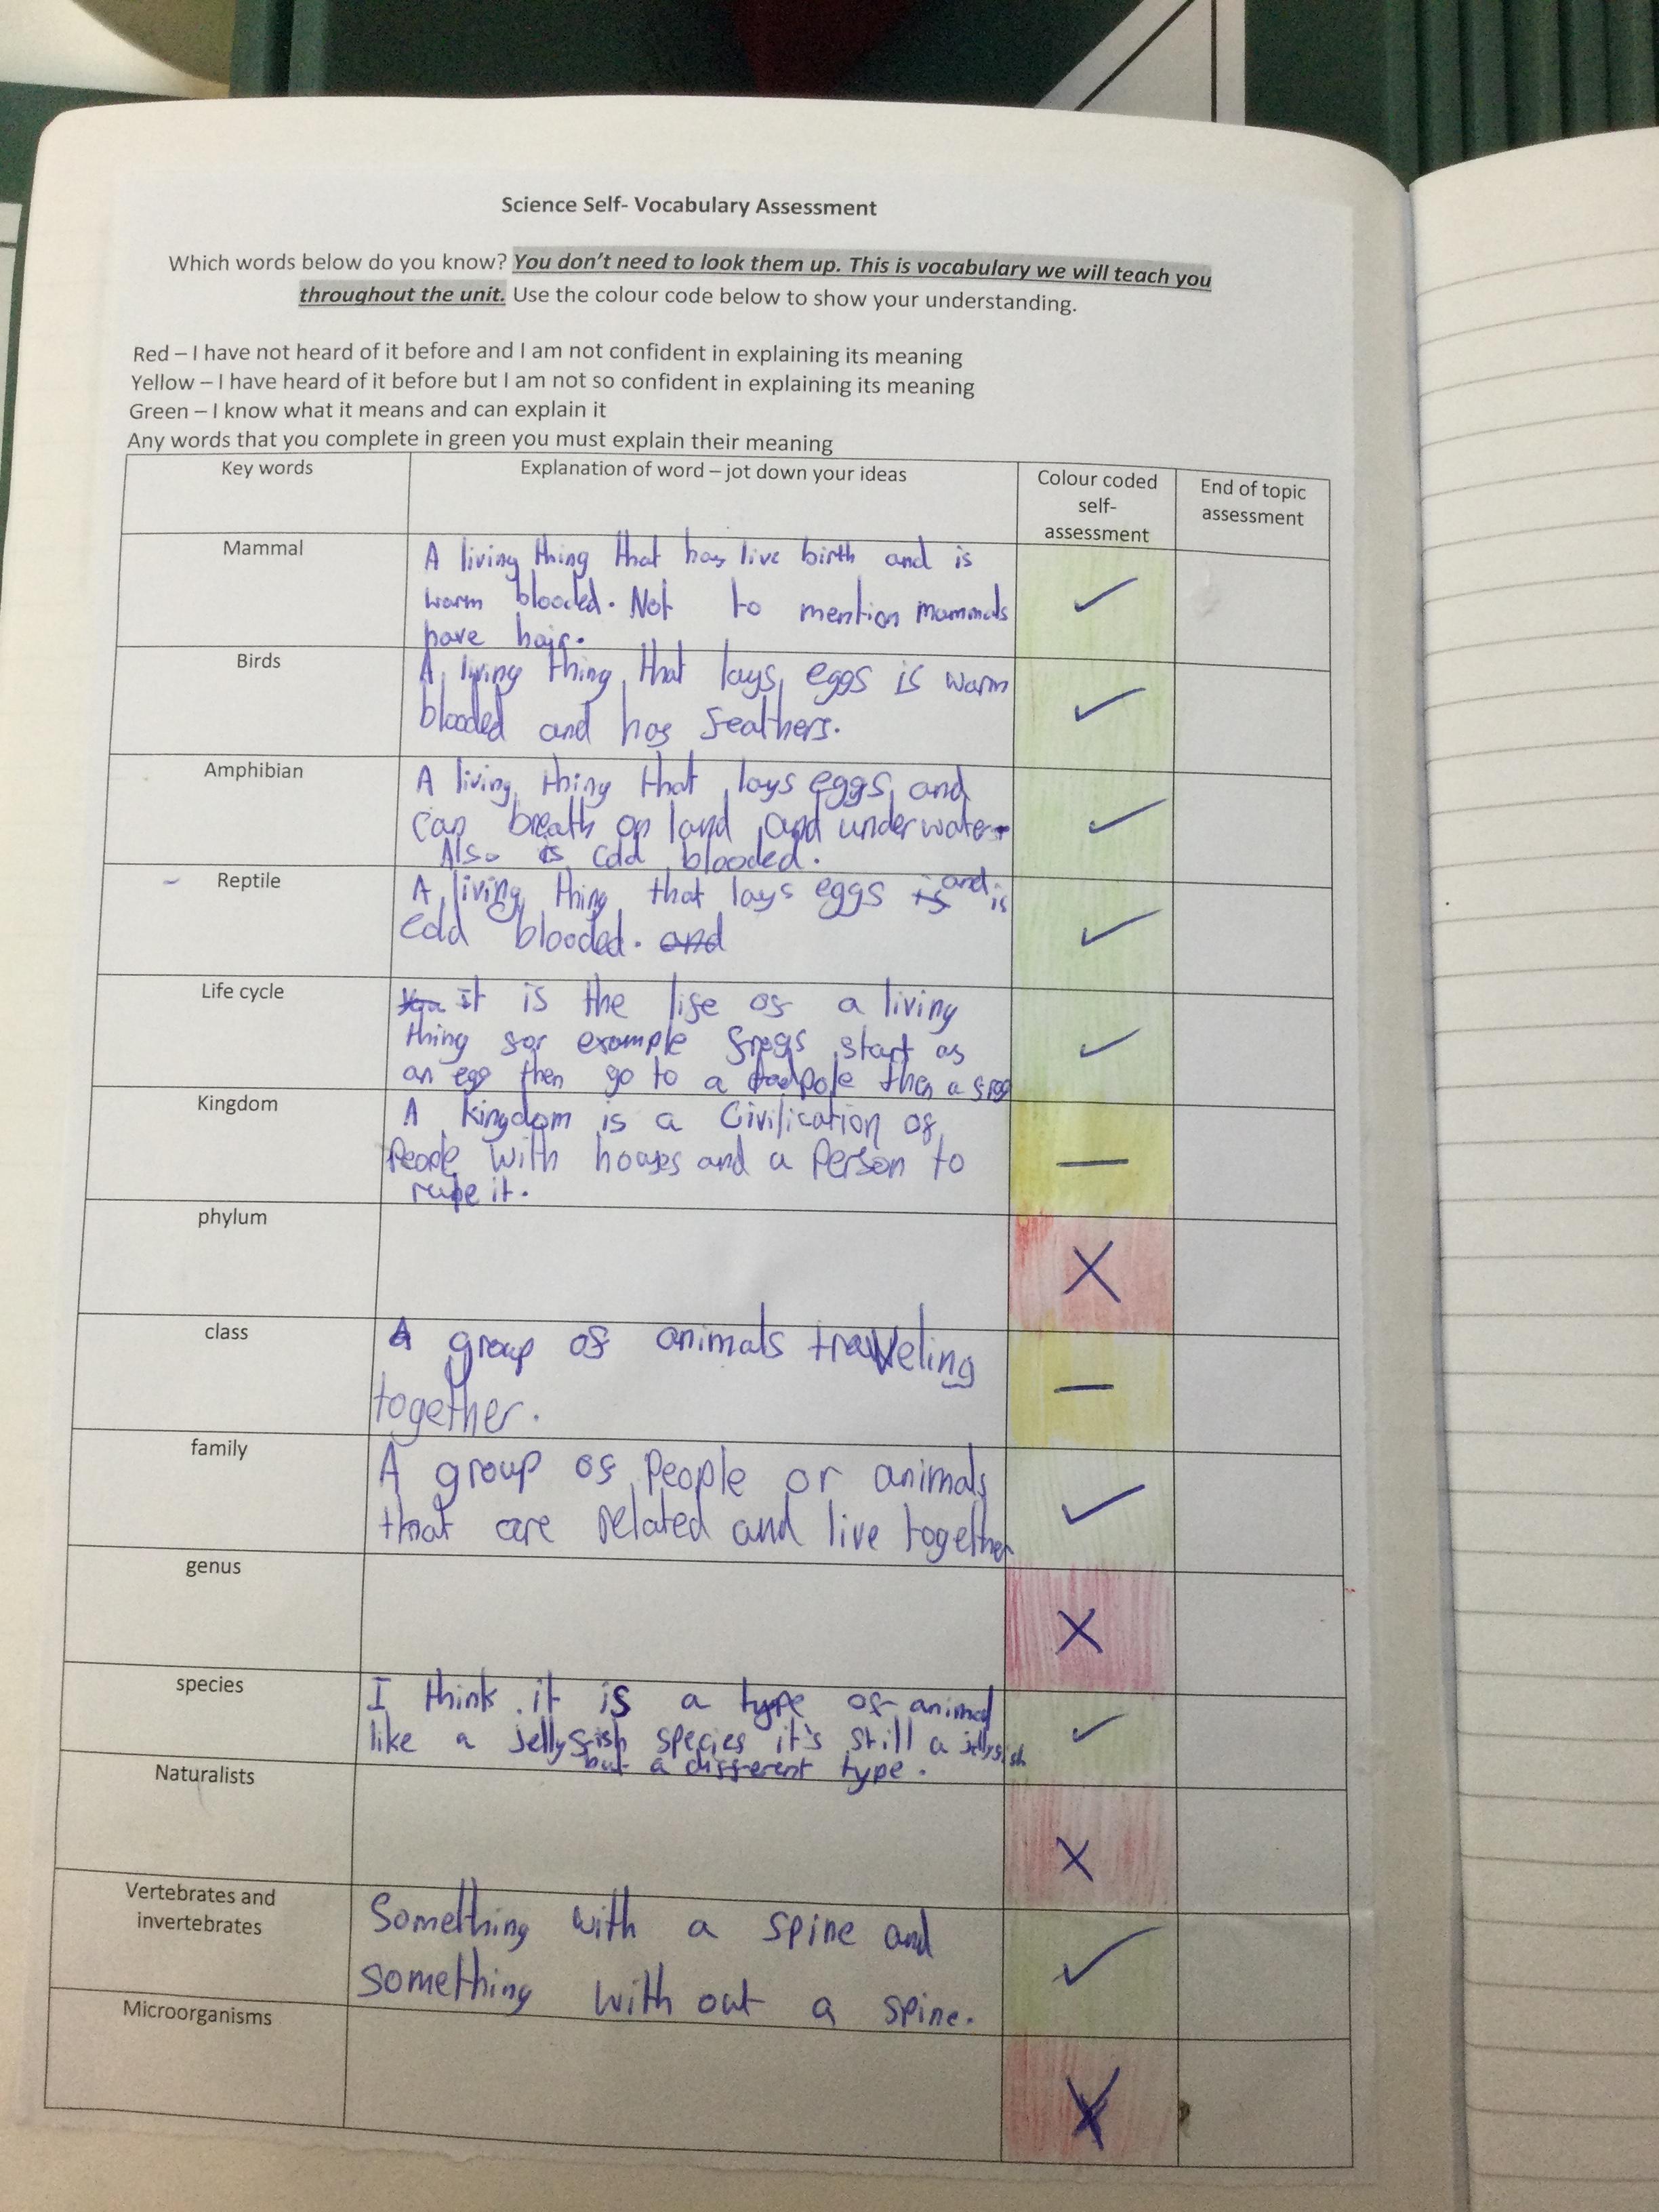 Science Self- Vocabulary Assessment
Which words below do you know? You don't need to look them up. This is vocabulary we will teach you
throughout the unit. Use the colour code below to show your understanding.
Red – I have not heard of it before and I am not confident in explaining its meaning
Yellow – I have heard of it before but I am not so confident in explaining its meaning
Green – I know what it means and can explain it
Any words that you complete in green you must explain their meaning
Key words
Explanation of word – jot down your ideas
Colour coded
self-
assessment
End of topic
assessment
Mammal
A living thing that has live birth and is
warm blooded. Not to mention mammals
have hair.
Birds
A living thing that lays eggs is warm
blooded and has feathers.
Amphibian
A living thing that lays eggs and
can breath on land and underwater
Also is cold blooded.
Reptile
A living thing that lays eggs is and is
cold blooded. and
Life cycle
it is the life of a living
thing for example frogs start as
an egg then go to a tadpole then a frog
Kingdom
A kingdom is a Civilication of
People with houses and a Person to
it.
phylum
class
A group of animals traveling
together.
family
A group of People or animals
that are related and live together
genus
species
I think it is a type of animal
like a jellyfish species it's still a jellyfish
but a different type.
Naturalists
Vertebrates and
invertebrates
Something with a spine and
something with out a spine.
Microorganisms